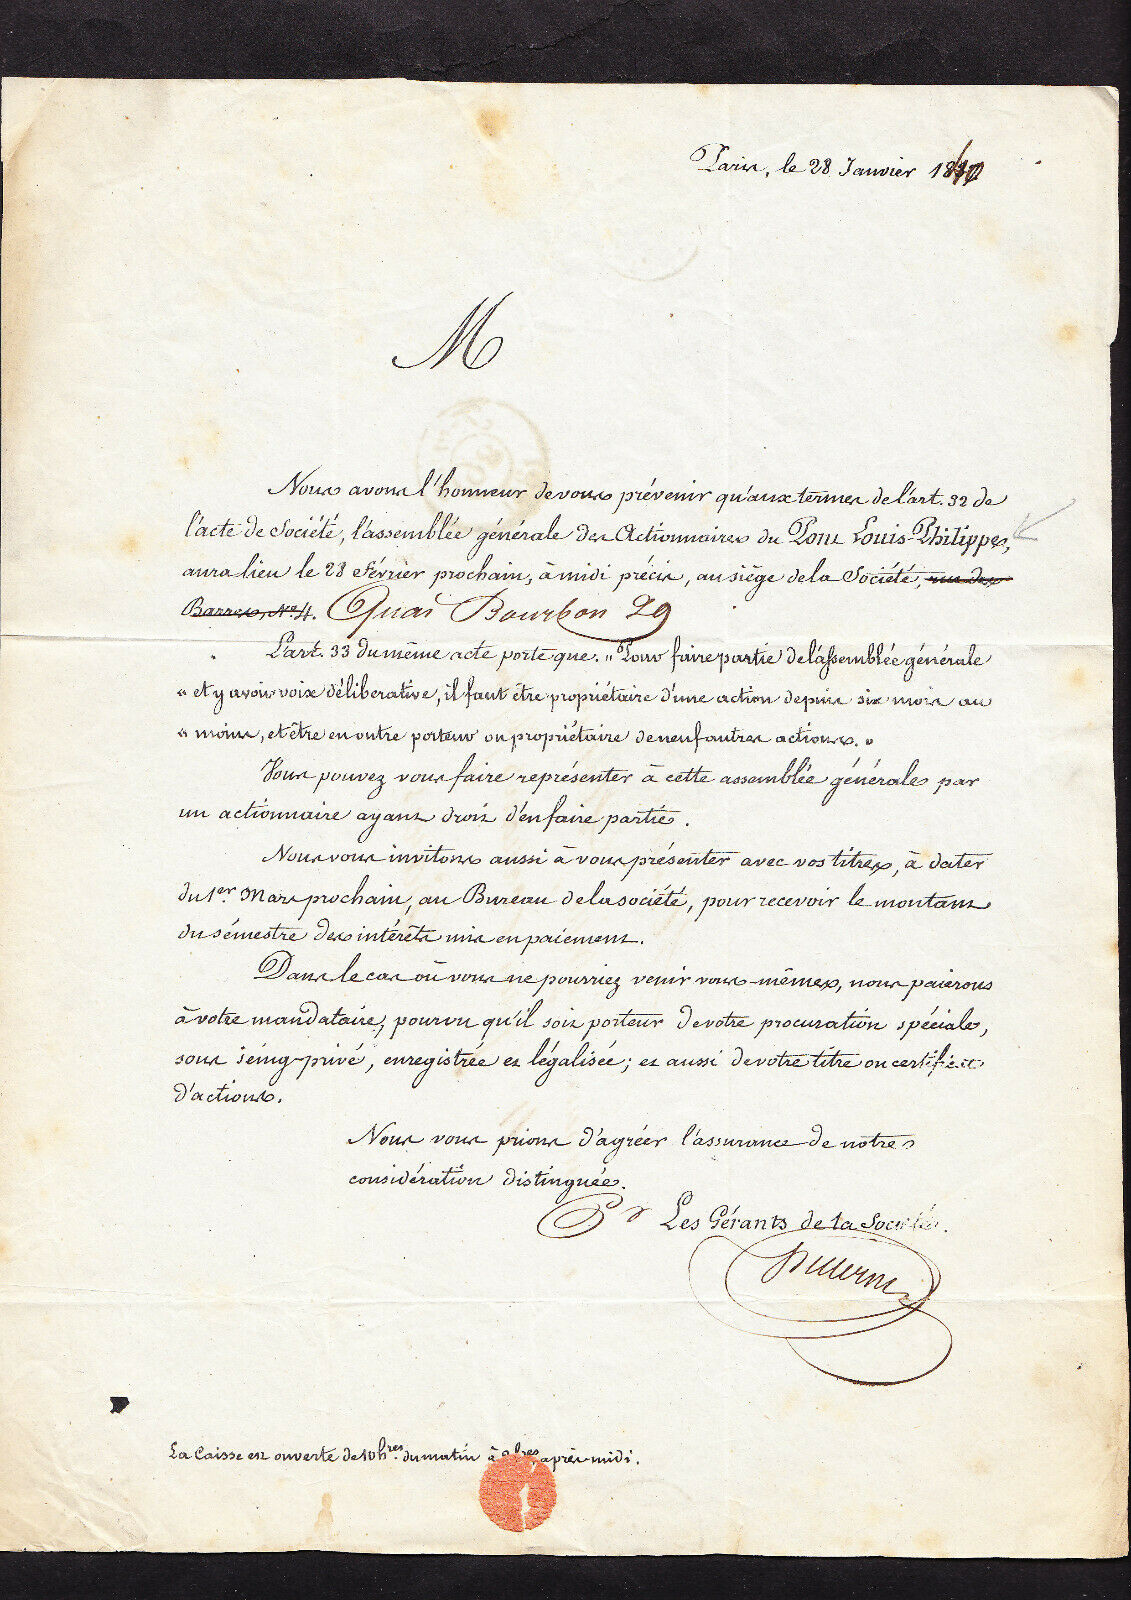 Paris, le 28 Janvier
M
Nous avons l'honneur de vous prévenir qu'aux termes de l'art. 32 de
l'acte de Société, l'assemblée générale des Actionnaires du Pont Louis-Philippe,
aura lieu le 28 Février prochain, à midi précis, au siège de la Société, rue des
Barres, N.º 4. Quai Bourbon 29
L'art. 33 du même acte porte que. "Pour faire partie de l'assemblée générale
" et y avoir voix délibérative, il faut être propriétaire d'une action depuis six mois au
" moins, et être en outre porteur ou propriétaire de neuf autres actions. "
Vous pouvez vous faire représenter à cette assemblée générale par
un actionnaire ayant droit d'en faire partie.
Nous vous invitons aussi à vous présenter avec vos titres, à dater
du 1er Mars prochain, au Bureau de la société, pour recevoir le montant
du sémestre des intérêts mis en paiement.
Dans le cas où vous ne pourriez venir vous-même, nous paierons
à votre mandataire, pourvu qu'il soit porteur de votre procuration spéciale,
sous seing-privé, enregistrée et légalisée; et aussi de votre titre ou certificat
d'actions.
Nous vous prions d'agréer l'assurance de notre
considération distinguée.
Pr Les Gérants de la Société.
La Caisse est ouverte de 10 hres du matin à 2 hres après-midi.